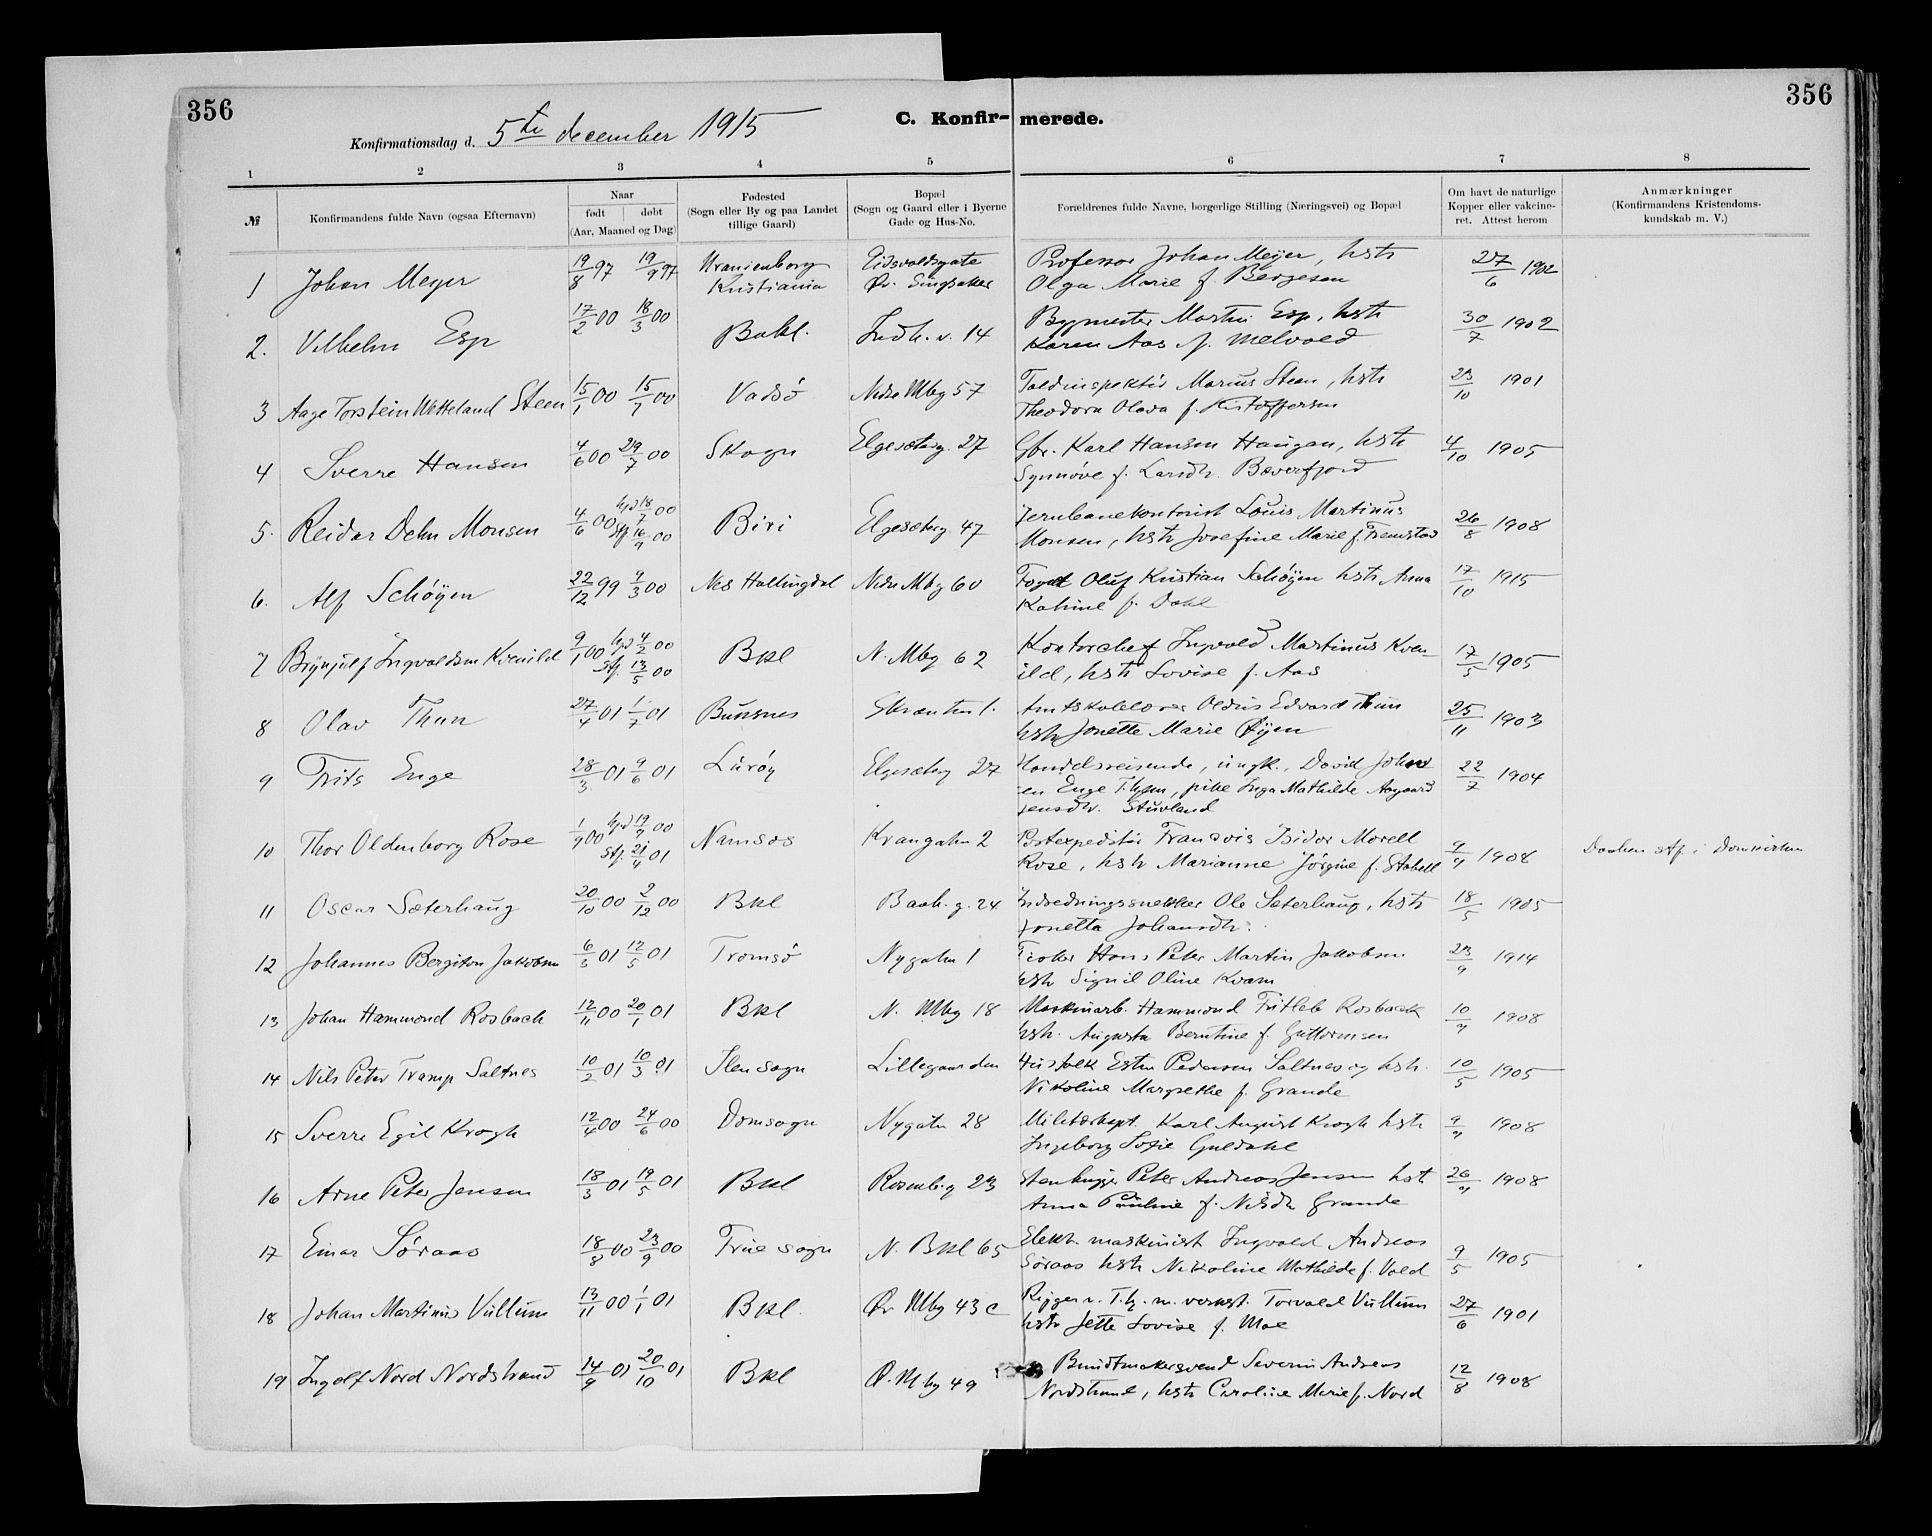 356
356
C. Konfirmerede.
Konfirmationsdag d. 5te december 1915
1 2 3 4 5 6 7 8
№
Konfirmandens fulde Navn (ogsaa Efternavn)
Naar
født døbt
(Aar, Maaned og Dag)
Fødested
(Sogn eller By og paa Landet
tillige Gaard)
Bopæl
(Sogn og Gaard eller i Byerne
Gade og Hus-No.
Forældrenes fulde Navne, borgerlige Stilling (Næringsvei) og Bopæl
Om havt de naturlige
Kopper eller vakcine-
ret. Attest herom
Anmærkninger
(Konfirmandens Kristendoms-
kundskab m. V.)
1 Johan Meyer 19/8 97 19/9 97 Uranienborg Kristiania Eidsvoldsgate Øv. Singsaker Professor Johan Meyer, hstr 27/6 1902
Olga Marie f. Bergesen
2. Vilhelm Esp 17/2 00 18/3 00 Bakl. Indh. v. 14 Bygmester Martin Esp, hstr 30/7 1902
Karen Aas f. Melvold
3 Aage Torstein Wetteland Steen 15/1 00 15/7 00 Vadsø Nedre Mbg 57 Toldinspektør Marius Steen, hstr 23/10 1901
Theodora Olava f. Kristoffersen
4 Sverre Hansen 4/6 00 29/7 00 Skogn Elgesæterg. 27 Gbr. Karl Hansen Haugan, hstr 4/10 1905
Synnøve f. Larsdtr. Bæverfjord
5. Reidar Dehn Monsen 4/6 00 hjd 18/7 00 stf 16/9 00 Biri Elgesæterg. 47 Jernbanekontorist Louis Martinus 26/8 1908
Monsen, hstr Josefine Marie f. Fremstad
6. Alf Schøyen 22/12 99 9/3 00 Nes Hallingdal Nedre Mbg 60 Foged Oluf Kristian Schøyen hstr Anna 17/10 1915
Katrine f. Dahl
7 Brynjulf Ingvaldsen Kvenild 9/1 00 hjd 4/2 00 stf. 13/5 00 Bkl N. Mbg 62 Kontorchef Ingvald Martinus Kven- 17/5 1905
ild, hstr Lovise f. Aas
8 Olav Thun 27/4 01 1/7 01 Buksnes Amtskolelærer Oldus Edvard Thun 25/11 1903
hstr Jonette Marie Øyen
9 Frits Enge 28/3 01 9/6 01 Lurøy Elgesæterg 27 Handelsreisende, ungk., David Johans 22/7 1904
en Enge T.hjem, pike Inga Mathilde Aagaard
Jensdtr. Stuvland
10 Thor Oldenborg Rose 1/9 00 hjd 19/9 00 stf. 21/4 01 Namsos Krangatn 2 Postexpeditør Francois Isidor Morell 9/9 1908 Daaben stf. i Domkirken
Rose, hstr Marianne Jørgine f. Stabell
11 Oscar Sæterhaug 20/10 00 2/12 00 Bkl Baak. g. 24 Indredningssnekker Ole Sæterhaug, hstr 18/5 1905
Jonetta Johansdtr.
12 Johannes Bergiton Jakobsen 6/3 01 12/5 01 Tromsø Nygatn 1 Hans Peter Martin Jakobsen 23/9 1914
hstr Sigrid Oline Kvam
13 Johan Hammond Rosbach 12/11 00 20/1 01 Bkl N. Mbg 18 Maskinarb. Hammond Fritleb Rosbach 10/9 1908
hstr. Augusta Berntine f. Guttormsen
14 Nils Peter Tramp Saltnes 10/2 01 10/3 01 Ilen sogn Lillegaarden Pedersen Saltnes og hstr. 10/5 1905
Nikoline Margrethe f. Grande
15 Sverre Egil Krogh 12/4 00 24/6 00 Domsogn Nygatn 28 Militærkapt. Karl August Krogh hstr 9/9 1908
Ingeborg Sofie Guldahl
16 Arne Peter Jensen 18/3 01 19/5 01 Bkl Rosenb.g 23 Stenhugger Peter Andreas Jensen hst 26/9 1908
Anna Pauline f. Nilsdtr Grande
17 Einar Søraas 18/8 00 23/9 00 Frue sogn N. Bkl 65 Elektr. maskinist Ingvald Andreas 9/5 1905
Søraas hstr Nikoline Mathilde f. Vold
18 Johan Martinus Vullum 13/11 00 1/1 01 Bkl. Øv Mbg 43 c Rigger v. T.hj. m. verkst. Torvald Vullum 27/6 1901
hstr Jette Lovise f. Moe
19 Ingolf Nord Nordstrand 14/9 01 20/10 01 Bkl Ø. Mbg 49 Bundtmakersvend Severin Andreas 12/8 1908
Nordstrand, hstr Caroline Marie f. Nord